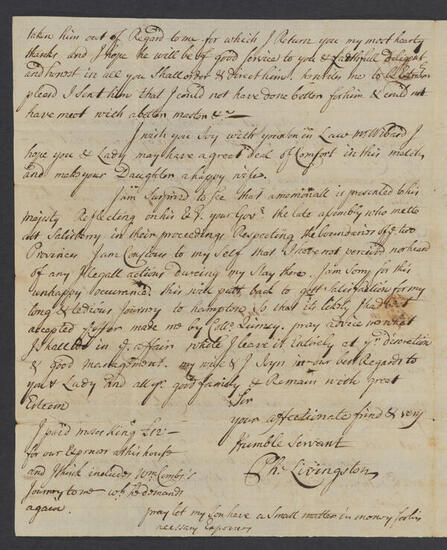 taken him out of Regard to me for which I Return you my most hearty
thanks, and I hope he will be of good service to you & faithfull diligent
and honest in all you Shall order & direct him. he writes me to be
pleasd I sent him that I could not have done better for him & could not
have meet with a better master &c —
I wish you Joy with your son in Law Mr I
hope you & Lady may have a great deal of Comfort in this match
and make your Daughter a happy wife.
I am Surprized to See that a memoriall is presented to his
majesty Reflecting on his Ex. your Govr. the late assembly who mette
att Salisbery in their proceedings Respecting the boundaries of ye two
Provinces I am Conscious to my Self that I have not perceivd nor heard
of any Illegall actions dureing my Stay there. I am Sorry for this
unhappy occurrance. this will putt back to gett Satisfaction for my
long & tedious Journey to hampton, So that its likely I had best
accepted ye offer made me by Coll. pray advice me what
I Shall do in ye affair while I leave it intirely at yr. discretion
& good managment. my wife & I Joyn in our best Regards to
you & Lady and all yr. good family & Remain with great
Esteem
Sir
your affectionate friend & very
Humble Servant
Ph. Livingston
I paid moses king £12-
for our Expences at his house
and I think includes Wm. Combs's
Journey to me wch. he demands
again.
pray let my Son have a Small matter in money for his
necessary Expences